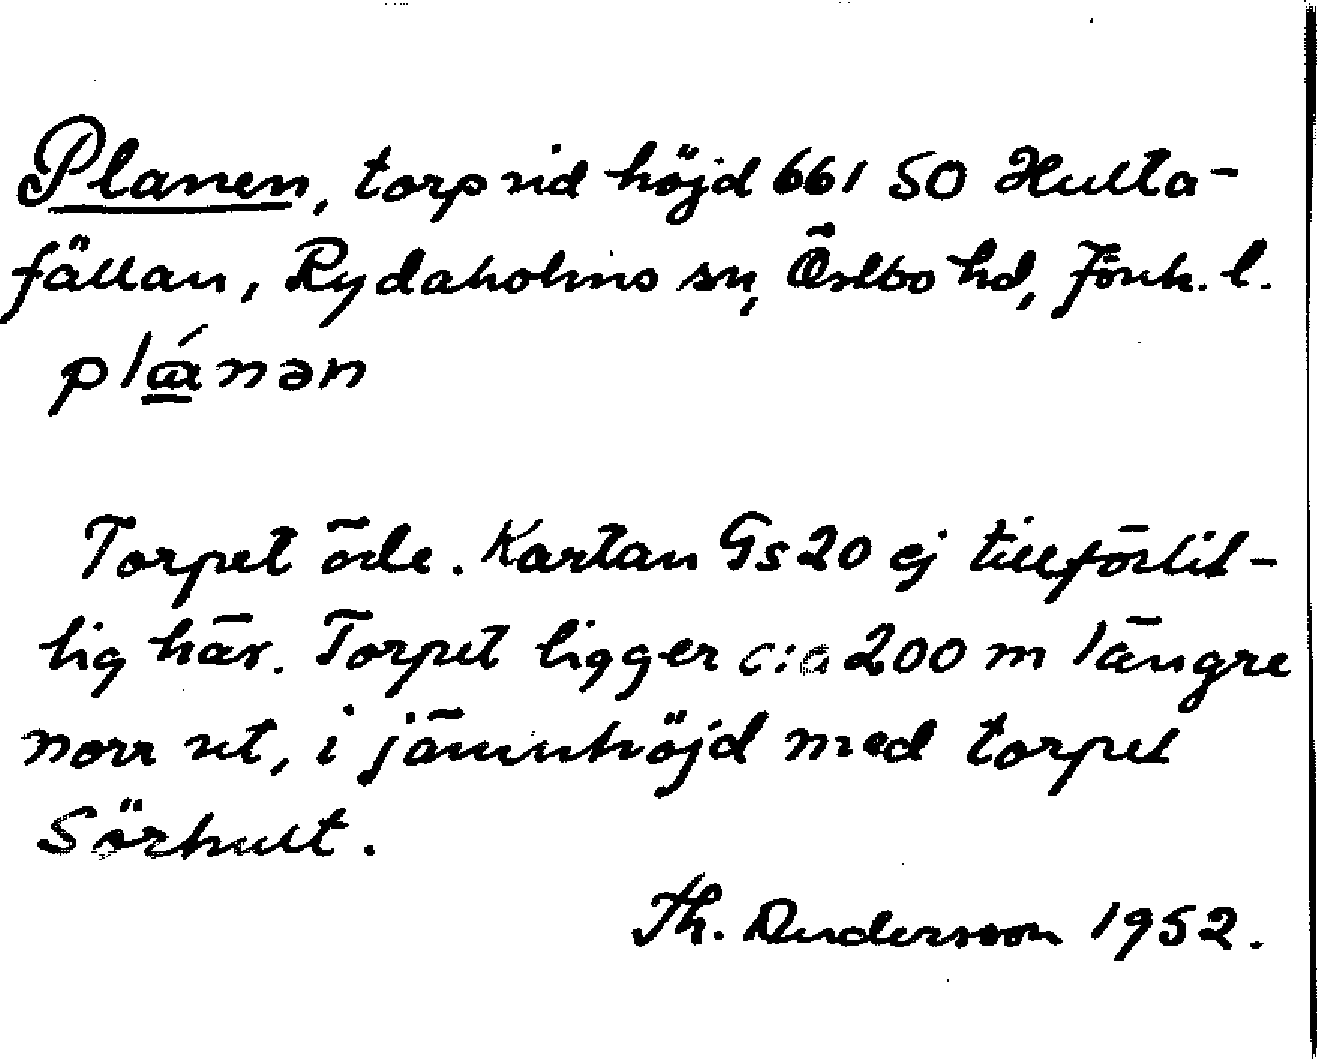 Planen, torp vid höjd 661 SO Hulta-
fällan, Rydaholms sn, Östbo hd, Jönk. l.
plánən
Torpet öde. Kartan Gs 20 ej tillförlit-
lig här. Torpet ligger c:a 200 m längre
norr ut, i jämnhöjd med torpet
Sörhult.
Th. Andersson 1952.